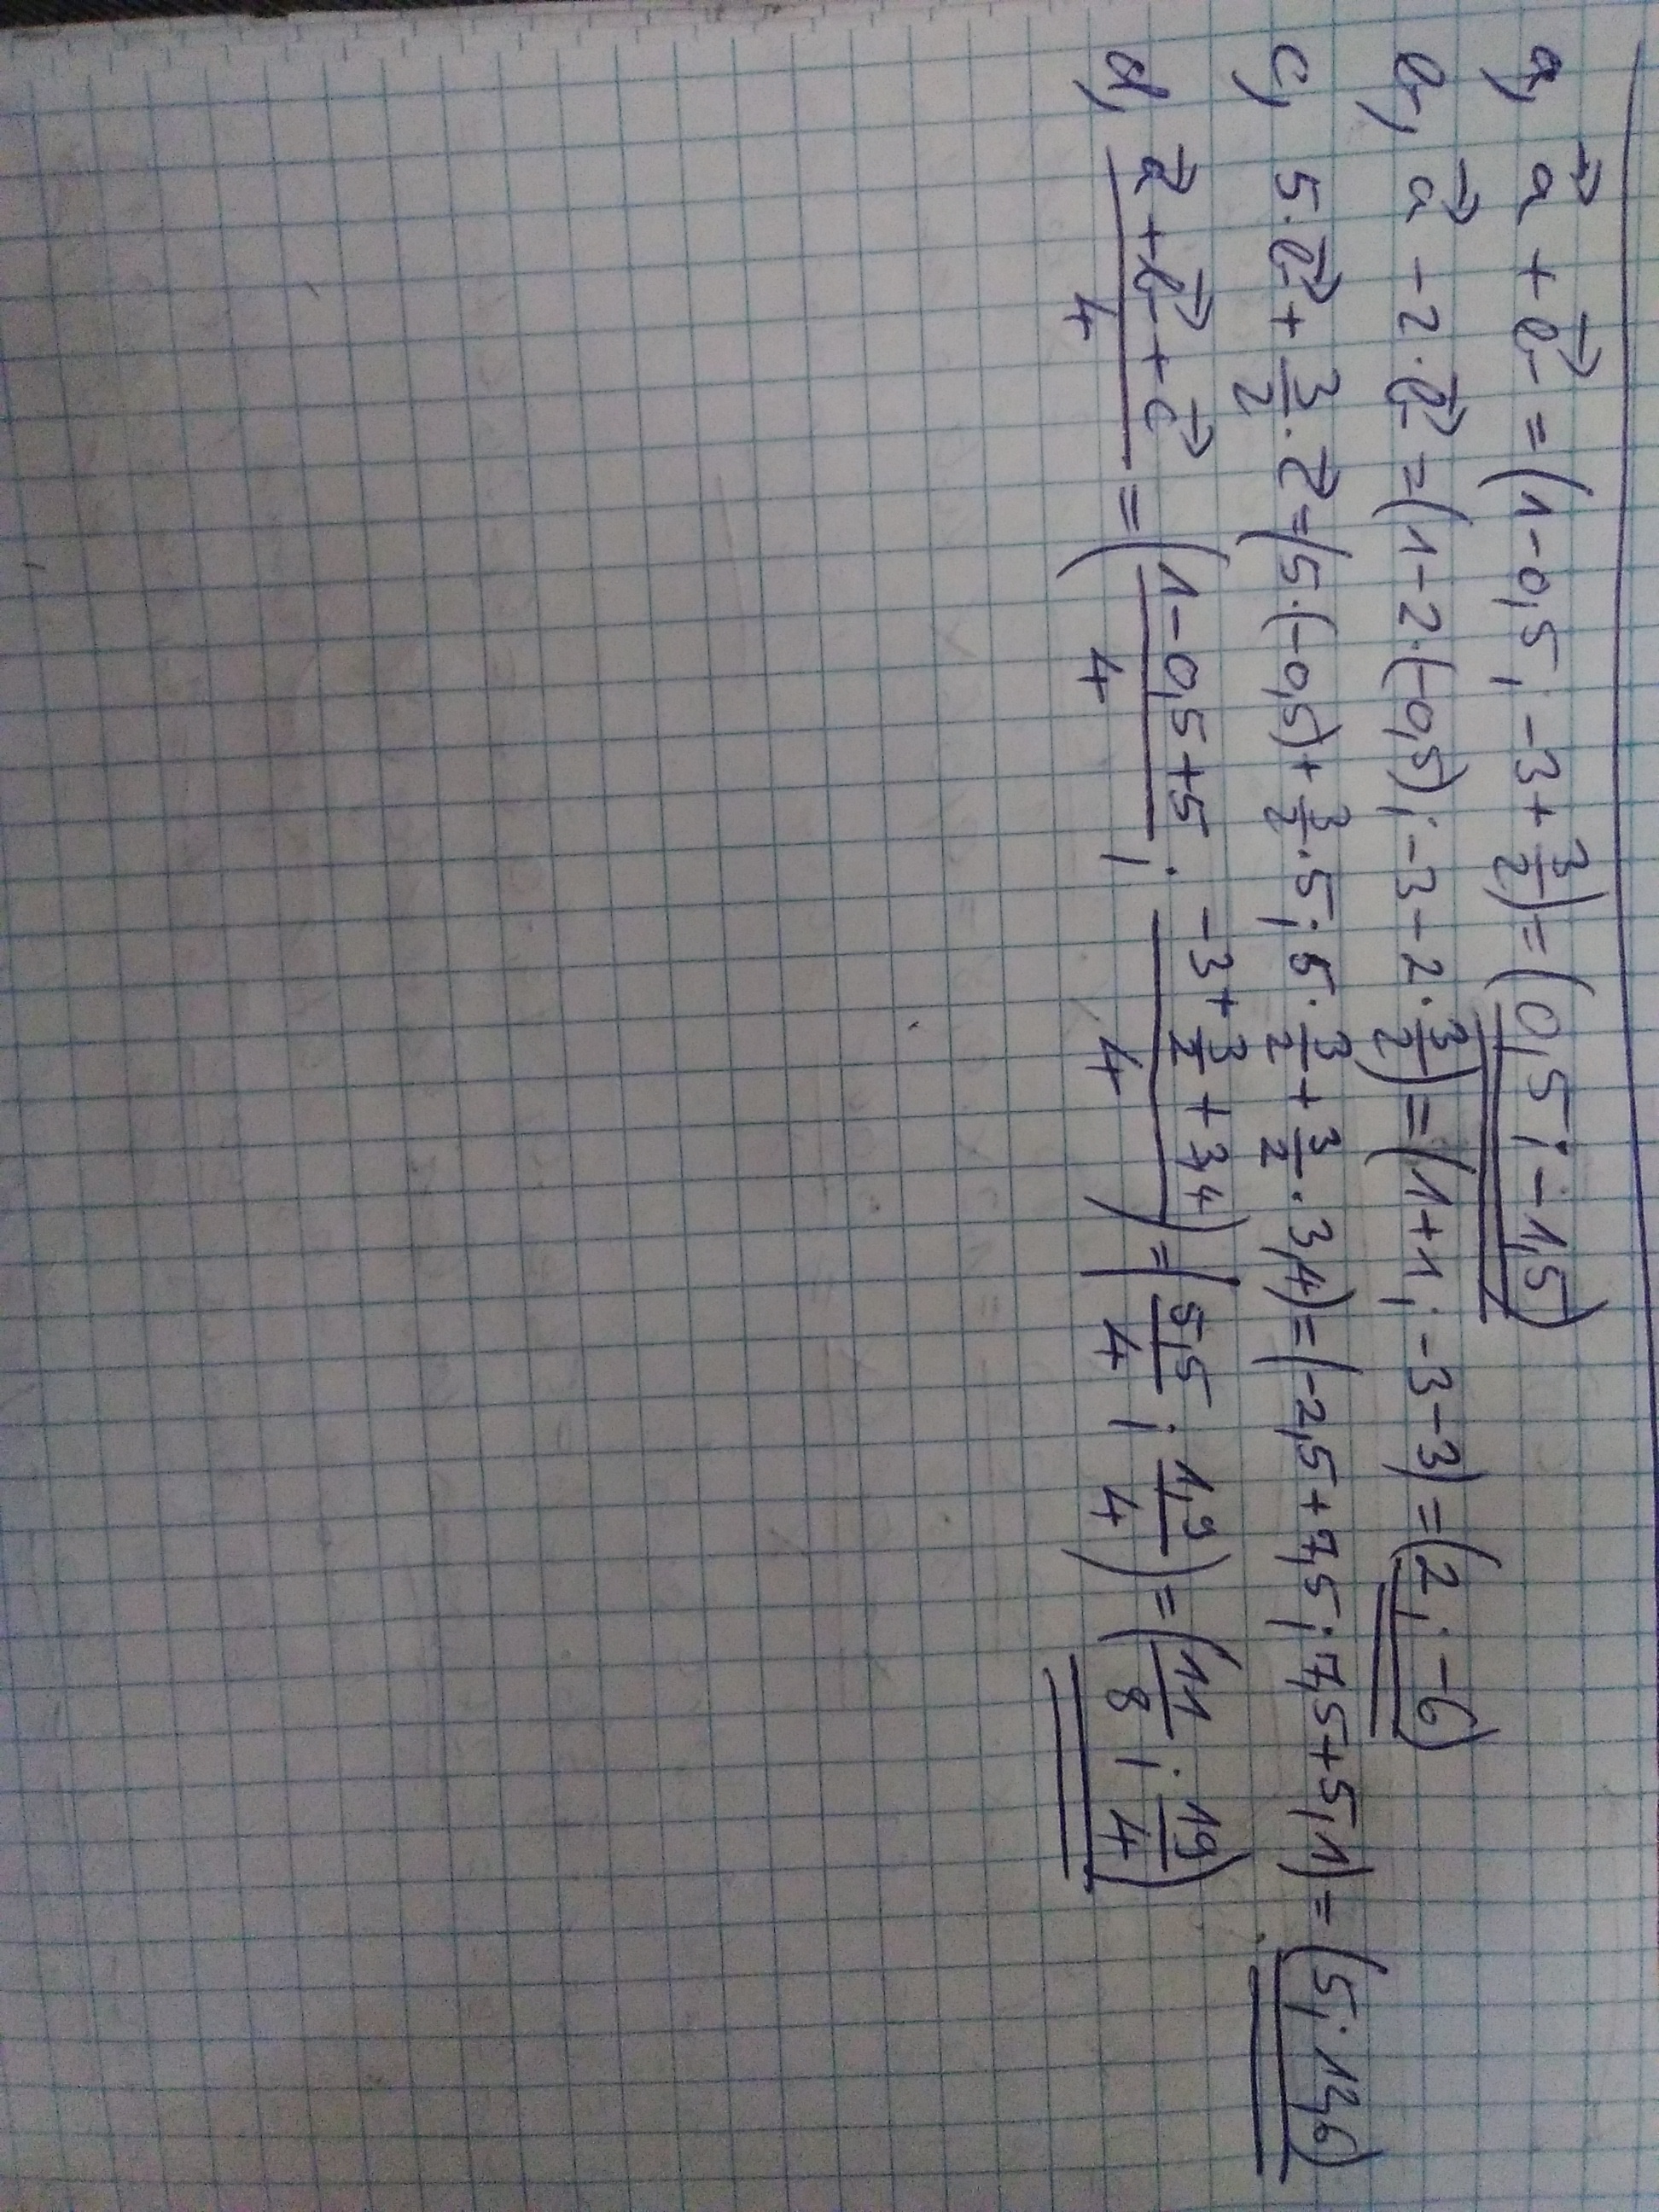 a, a⃗ + b⃗ = (1-0,5; -3+3/2) = (0,5; -1,5)
b, a⃗ - 2·b⃗ = (1-2·(-0,5); -3-2·3/2) = (1+1; -3-3) = (2; -6)
c, 5·b⃗ + 3/2·c⃗ = (5·(-0,5)+3/2·5; 5·3/2+3/2·3,4) = (-2,5+7,5; 7,5+5,1) = (5; 12,6)
d, (a⃗+b⃗+c⃗)/4 = ((1-0,5+5)/4; (-3+3/2+3,4)/4) = (5,5/4; 1,9/4) = (11/8; 19/4)